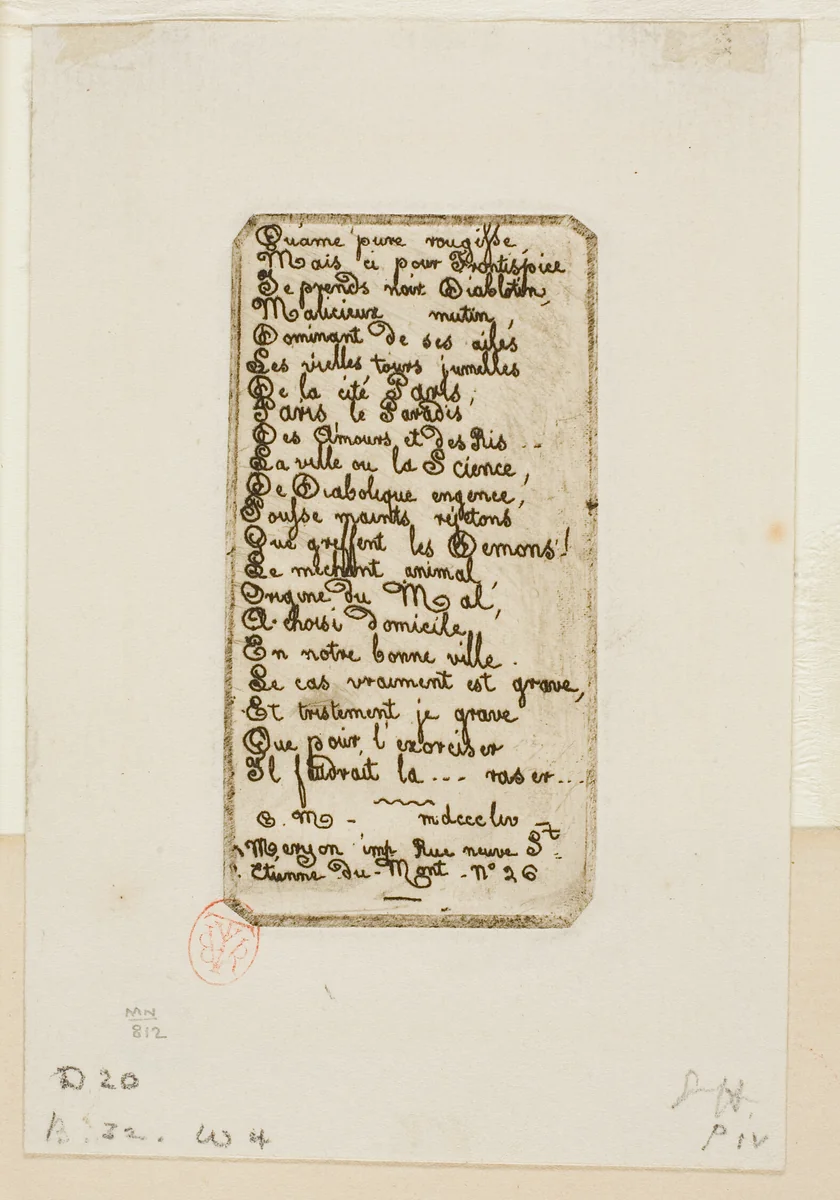 Qu'ame pure rougisse,
Mais ci pour Frontispice
Je prends noir Diablotin,
Malicieux mutin,
Dominant de ses ailes
Les vielles tours jumelles
De la cité Paris;
Paris le Paradis
Des Amours et des Ris --
La ville ou la Science,
De Diabolique engence,
Pousse maints rejetons
Que greffent les Demons!
Le mechant animal,
Origine du Mal,
A choisi domicile,
En notre bonne ville.
Le cas vraiment est grave,
Et tristement je grave
Que pour l'exorciser
Il faudrait la --- raser...
C. M - mdcccliv -
Meryon imp Rue neuve St
Etienne-du-Mont - No 26
MN
812
D 20
B. 32. W 4
P IV